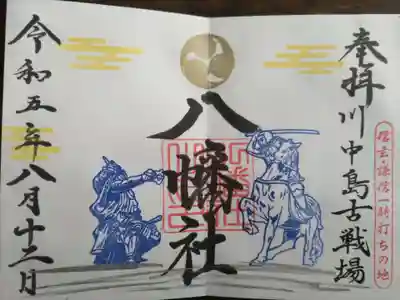 奉拝
川中島古戦場
信玄・謙信一騎打ちの地
八幡社
令和五年八月十二日